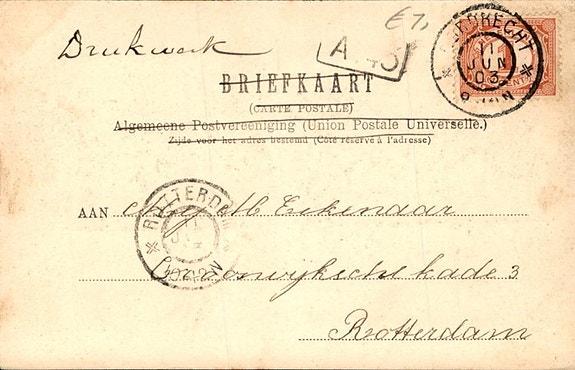 € 7,
Drukwerk
DORDRECHT
11 JUN 03
BRIEFKAART
(CARTE POSTALE)
Algemeene Postvereeniging (Union Postale Universelle.)
Zijde voor het adres bestemd (Côté réservé à l'adresse)
ROTTERDAM
AAN Eekenaar
kade 3
Rotterdam